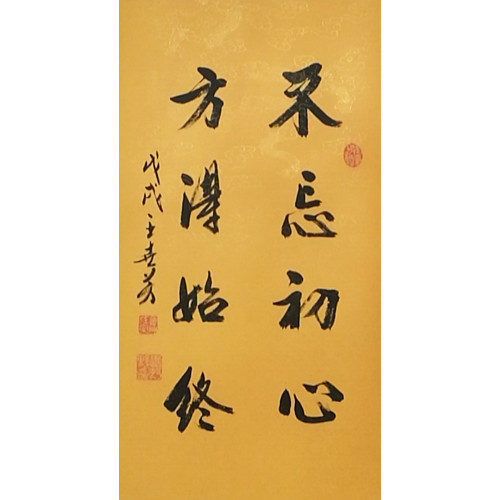 不忘初心
方得始终
戊戌王